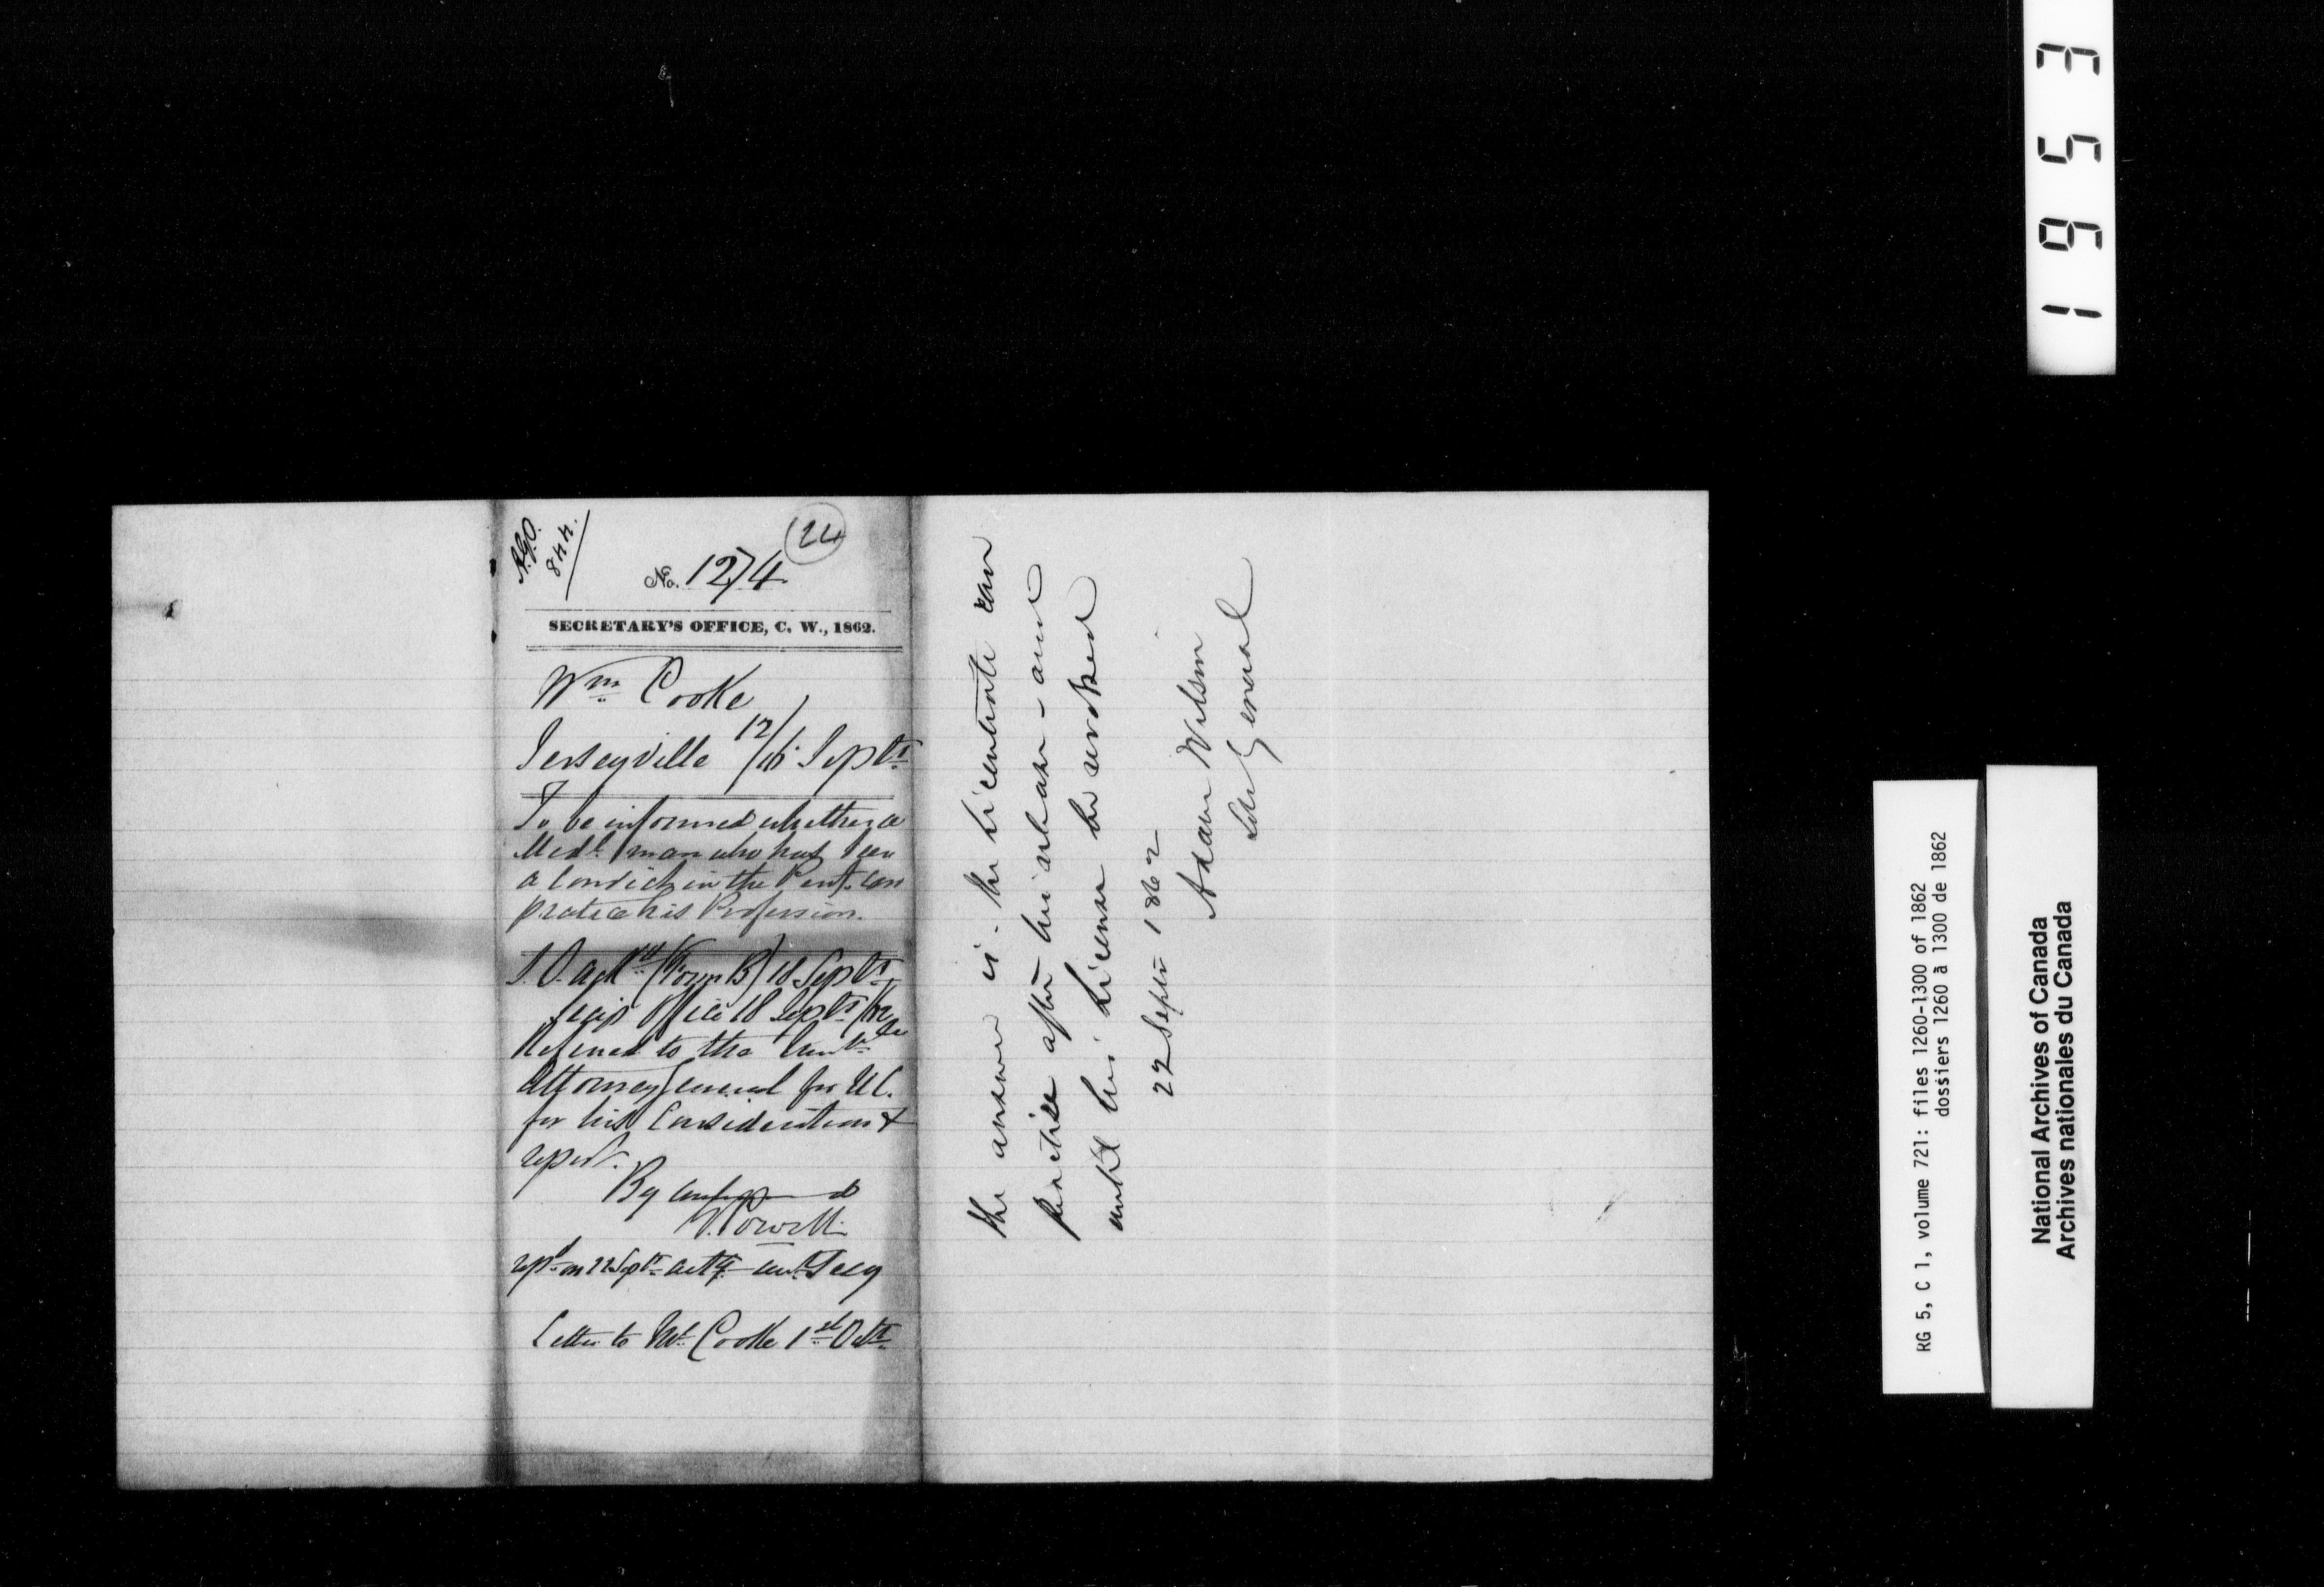 A.G.O.
844.
24
No. 1274
SECRETARY'S OFFICE, C. W., 1862.
Wm. Cooke
Jerseyville 12/16 Septr.
To be informed whether a
Medl. man who has been
a Convict in the Pent. can
pratice his Profession.
Ackd. (Form B) 18 Septr.
Office 18 Septr. /62
Referred to the Honble. the
Attorney General for U.C.
for his Consideration &
report.
By Command
Powell
repd. on 22 Septr.
Letter to Mr. Cooke 1st. Octr.
The answer is - the Licentiate can
practise after his release - and
until his License be revoked
22 Septr 1862
Adam Wilson
Sol. General
1953
RG 5, C 1, volume 721: files 1260-1300 of 1862
dossiers 1260 à 1300 de 1862
National Archives of Canada
Archives nationales du Canada